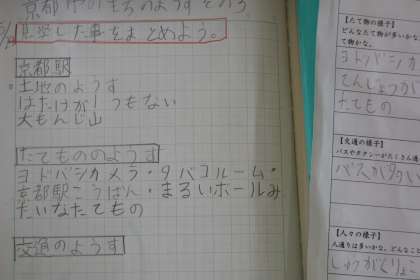 京都市のまちのようす その3
見学した事をまとめよう。
京都駅
土地のようす
はたけが1つもない
大もんじ山
たてもののようす
ヨドバシカメラ・タバコルーム・
京都駅こうばん・まるいホールみ
たいなたてもの
交通のようす
【たて物の様子】
どんなたて物が多いかな
て物かな。
ヨドバシカ
てんじょうが
たてもの
【交通の様子】
バスやタクシーがたくさん通
バスが多い
【人々の様子】
人通りは多いかな。どんなこと
しゅうがくりょこ